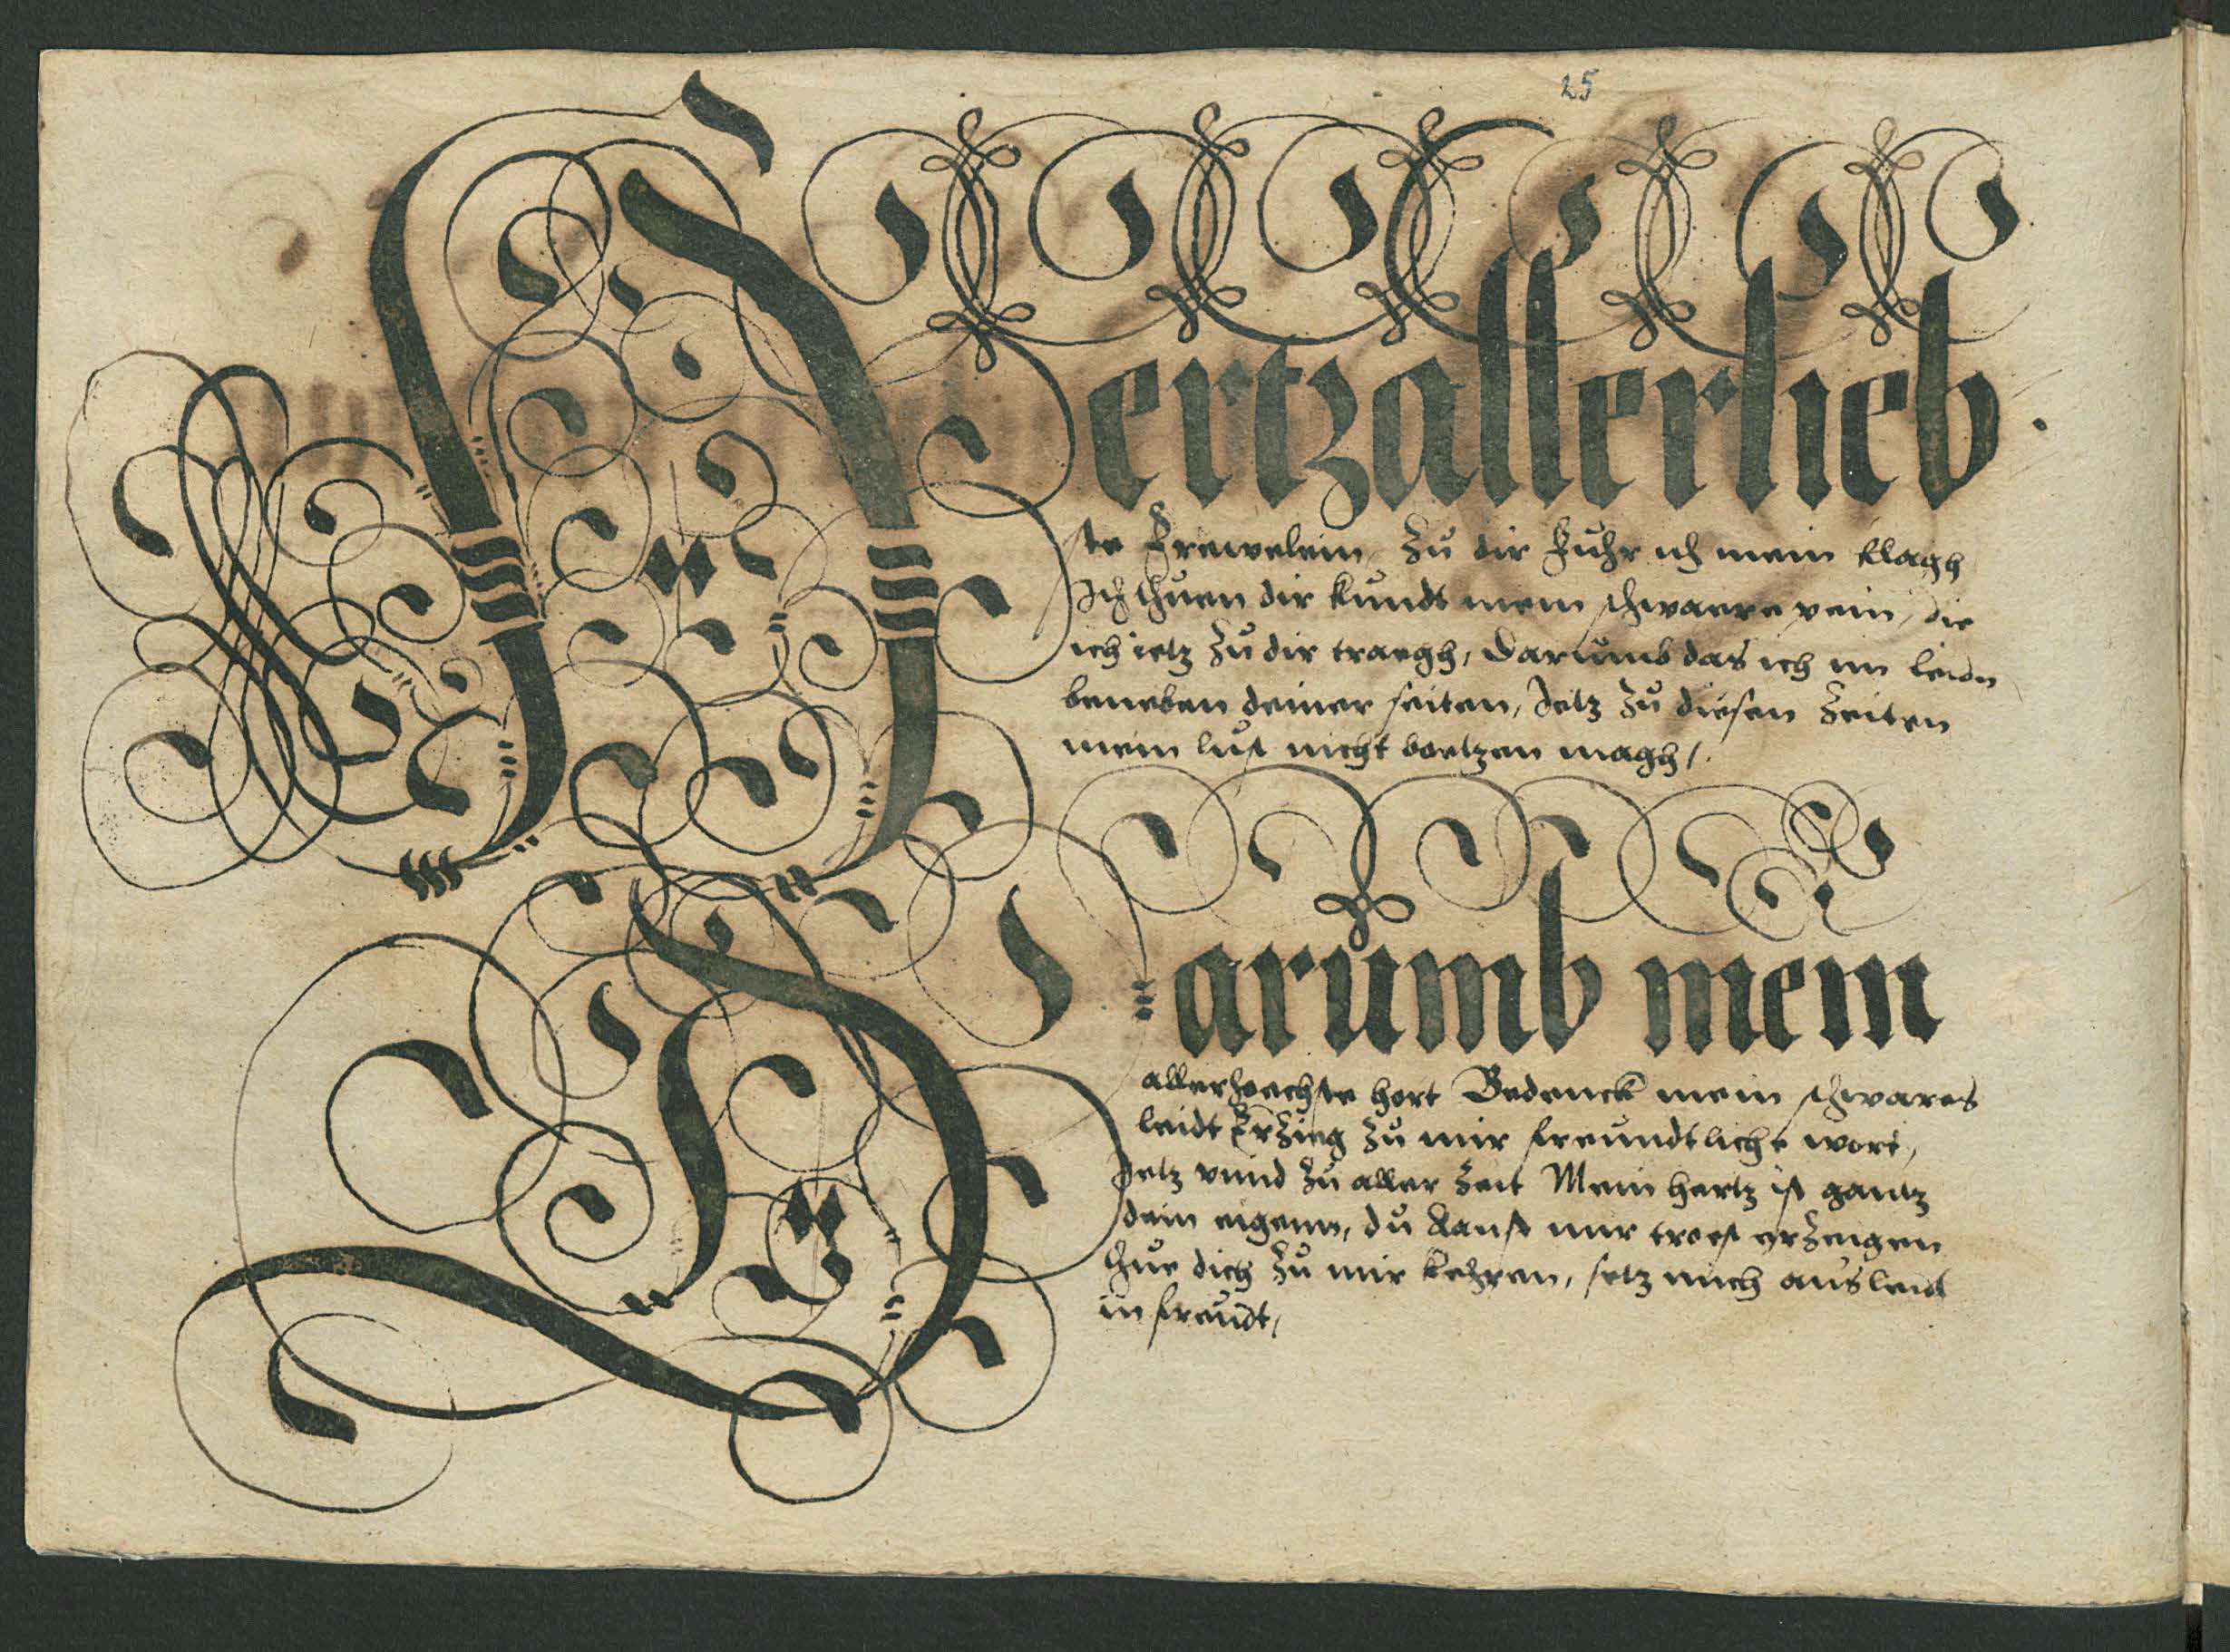 25
Hertzallerlieb
ste Frewelein, Zu dir fuhr ich mein klagh
Ich thuen dir kundt mein schwaere pein, die
ich ietz zu dir traegh, darumb das ich im leidn
beneben deiner seiten, Jetz zu diesen zeiten
mein lust nicht boetzen magh,
Darumb mein
allerhoechste hort Bedenck mein schwares
leidt Erzeig zu mir freundtliche wort,
Jetz vnnd zu aller zeit Mein hertz ist gantz
dein eigenn, du kanst mir troest erzeigen
thue dich zu mir kehren, setz mich aus leid
in freudt,